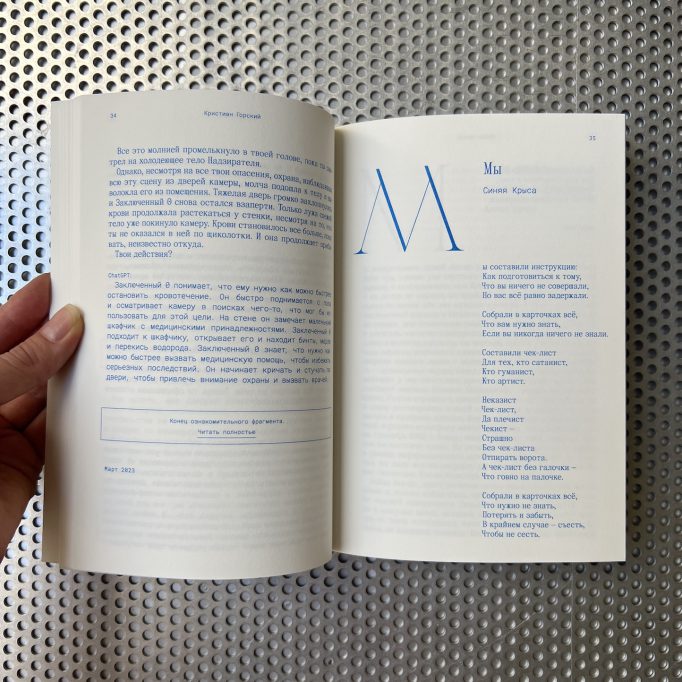 34
Кристиан Горский
Все это молнией промелькнуло в твоей голове, пока ты
трел на холодеющее тело Надзирателя.
Однако, несмотря на все твои опасения, охрана, наблюдавшая
всю эту сцену из дверей камеры, молча подошла к телу и
волокла его из помещения. Тяжелая дверь громко
и Заключенный 0 снова остался взаперти. Только лужа
крови продолжала растекаться у стенки, несмотря на то, что
тело уже покинуло камеру. Крови становилось все больше, пока
ты не оказался в ней по щиколотки. И она продолжает
вать, неизвестно откуда.
Твои действия?
ChatGPT:
Заключенный 0 понимает, что ему нужно как можно быстрее
остановить кровотечение. Он быстро поднимается с пола
и осматривает камеру в поисках чего-то, что мог бы
пользовать для этой цели. На стене он замечает маленький
шкафчик с медицинскими принадлежностями. Заключенный 0
подходит к шкафчику, открывает его и находит бинты, марлю
и перекись водорода. Заключенный 0 знает, что нужно как
можно быстрее вызвать медицинскую помощь, чтобы избежать
серьезных последствий. Он начинает кричать и стучать по
двери, чтобы привлечь внимание охраны и вызвать врачей.
Конец ознакомительного фрагмента.
Читать полностью
Март 2023
35
Мы
Синяя Крыса
М
ы составили инструкцию:
Как подготовиться к тому,
Что вы ничего не совершали,
Но вас всё равно задержали.
Собрали в карточках всё,
Что вам нужно знать,
Если вы никогда ничего не знали.
Составили чек-лист
Для тех, кто сатанист,
Кто гуманист,
Кто артист.
Неказист
Чек-лист,
Да плечист
Чекист —
Страшно
Без чек-листа
Отпирать ворота.
А чек-лист без галочки —
Что говно на палочке.
Собрали в карточках всё,
Что нужно не знать,
Потерять и забыть,
В крайнем случае — съесть,
Чтобы не сесть.